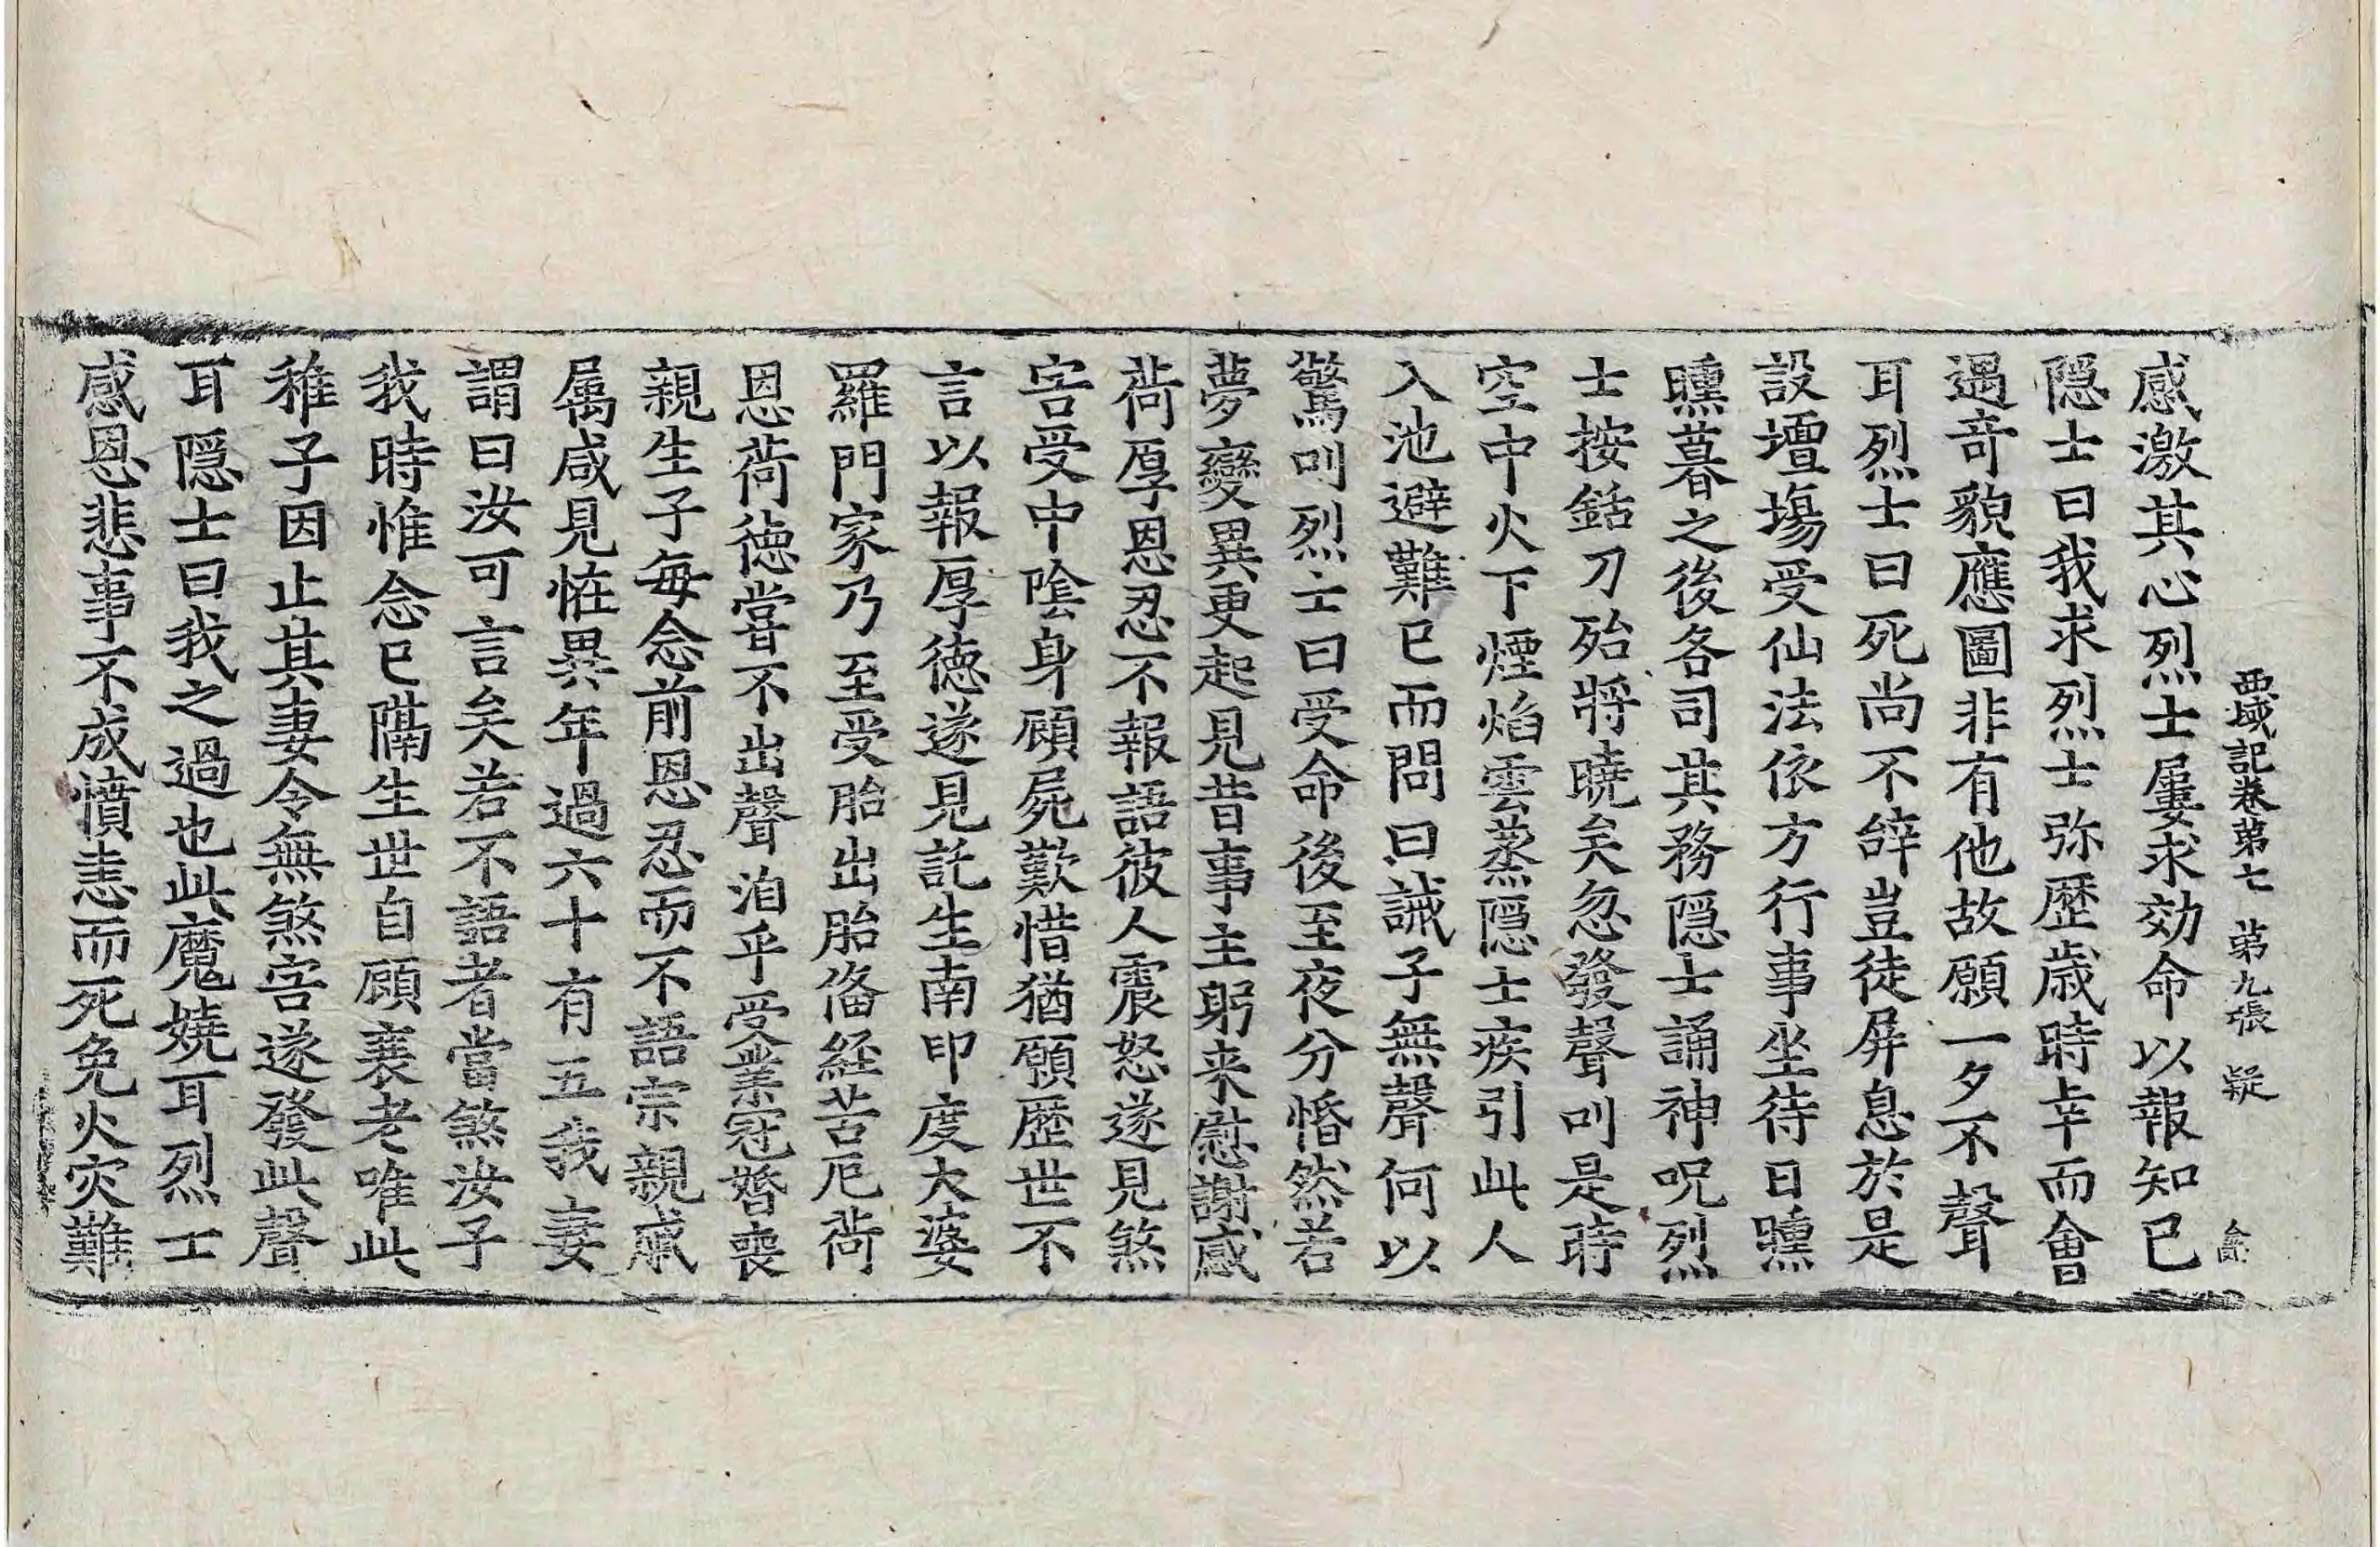 西域記卷苐七　苐九張　疑
感激其心烈士屢求効命以報知已
隠士曰我求烈士弥歴歳時幸而會
遇奇貌應圖非有他故願一夕不聲
耳烈士曰死尚不辝豈徒屏息於是
設壇場受仙法依方行事坐待日曛
曛暮之後各司其務隠士誦神呪烈
士按銛刀殆將曉矣忽發聲叫是時
空中火下煙焰雲蒸隠士疾引此人
入池避難已而問曰誡子無聲何以
驚叫烈士曰受命後至夜分惛然若
夢變異更起見昔事主躬来慰謝感
荷厚恩忍不報語彼人震怒遂見煞
害受中陰身顧屍歎惜猶願歴世不
言以報厚徳遂見託生南印度大婆
羅門家乃至受胎出胎俻經苦厄荷
恩荷徳嘗不出聲洎乎受業冠婚喪
親生子每念前恩忍而不語宗親戚
属咸見恠異年過六十有五我妻
謂曰汝可言矣若不語者當煞汝子
我時惟念已隔生世自顧衰老唯此
稚子因止其妻令無煞害遂發此聲
耳隠士曰我之過也此魔嬈耳烈士
感恩悲事不成憤恚而死免火灾難